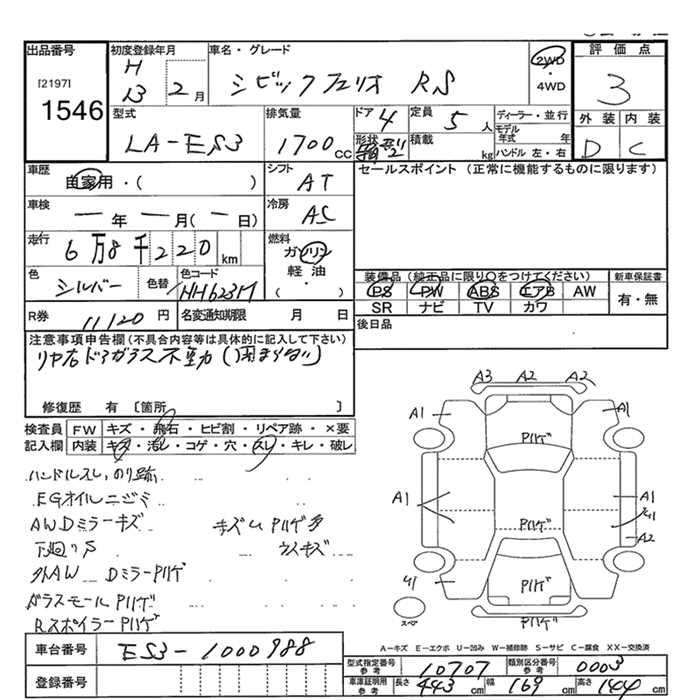 出品番号
[2197]
1546
初度登録年月
H
13 2月
車名・グレード
シビックフェリオ RS
2WD
・
4WD
評価点
3
外装 内装
D C
型式
LA-ES3
排気量
1700 cc
ドア 4
形状
箱型
定員
5 人
積載
kg
ディーラー・並行
モデル
年式 年
ハンドル 左・右
車歴
自家用・( )
シフト
AT
セールスポイント (正常に機能するものに限ります)
車検
— 年 — 月( — 日)
冷房
AC
走行
6万8千220km
燃料
ガソリン
軽油・
( )
色
シルバー
色替
色コード
NH623M
装備品 (純正品に限り○をつけてください)
PS PW ABS エアB AW
SR ナビ TV カワ
新車保証書
有・無
R券
11120円
名変通知期限 月 日
後日品
注意事項申告欄(不具合内容等は具体的に記入して下さい)
リヤ右ドアガラス不動
修復歴 有 [箇所 ]
検査員
記入欄
FW キズ・飛石・ヒビ割・リペア跡・×要
内装 キズ・汚レ・コゲ・穴・スレ・キレ・破レ
ハンドルスレ、のり跡
EGオイルニジミ
AWDミラーキズ キズUPハゲ多
下廻りS ウスキズ
外AW DミラーPハゲ
ガラスモールPハゲ
RスポイラーPハゲ
A3 A2 A2
A1 A1
Pハゲ
A1 A1
A2
Pハゲ
Pハゲ
スペア
Pハゲ
A−キズ E−エクボ U−凹み W−補修跡 S−サビ C−腐食 XX−交換済
車台番号
ES3-1000988
登録番号
型式指定番号
参考
10707
類別区分番号
参考
0003
車庫証明用
参考
長さ 443 cm 幅 169 cm 高さ 144 cm